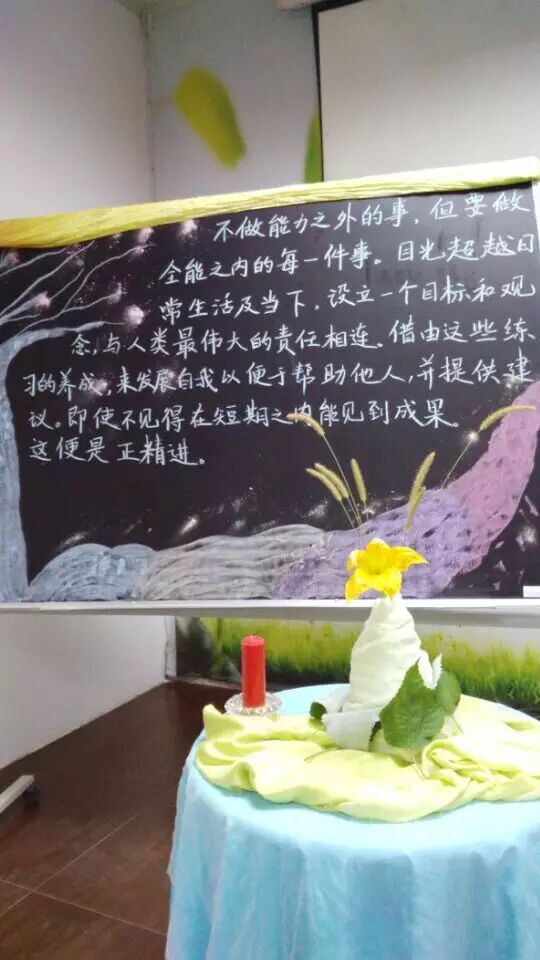 不做能力之外的事，但要做
全能之内的每一件事。目光超越日
常生活及当下，设立一个目标和观
念，与人类最伟大的责任相连。借由这些练
习的养成，来发展自我以便于帮助他人，并提供建
议。即使不见得在短期之内能见到成果。
这便是正精进。